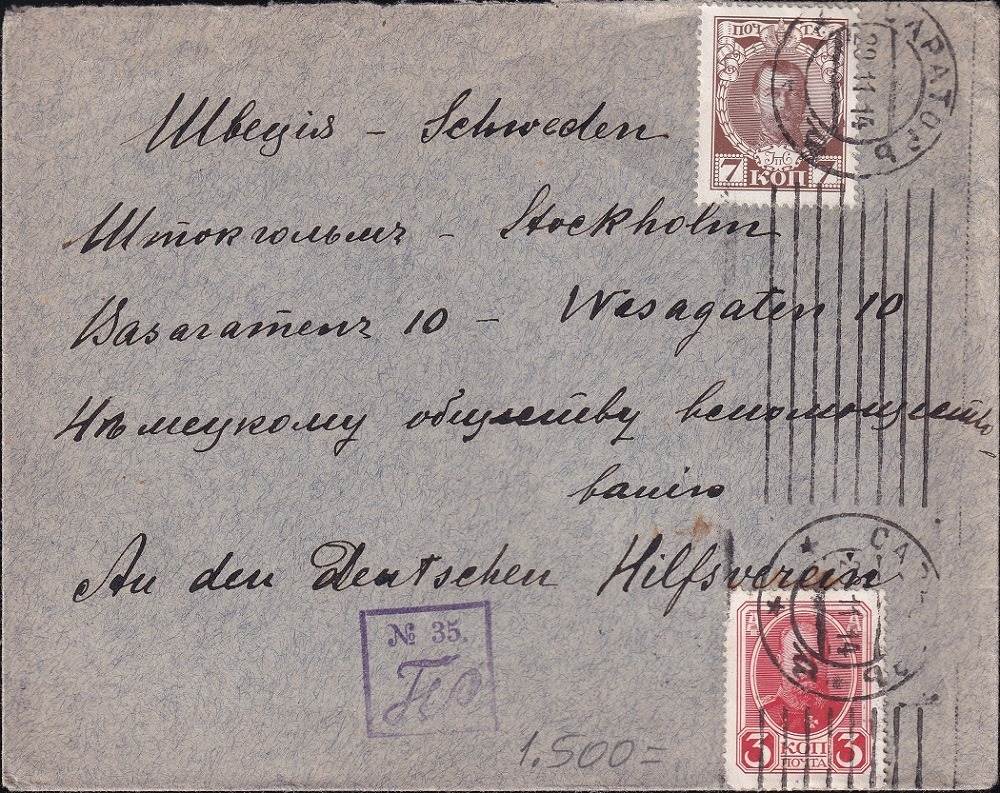 ПОЧТА
7 КОП 7
САРАТОВЪ
29 11 14
Швеція - Schweden
Штокгольмъ - Stockholm
Вазагатенъ 10 - Wasagaten 10
Нѣмецкому обществу вспомощество
ванію
An den Deutschen Hilfsverein
№ 35.
1.500=
11 14
3 КОП 3
ПОЧТА